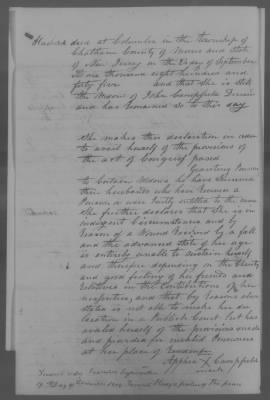 Husband died at Columbia in the township of
Chatham County of Morris and state
of New Jersey on the day of September
One thousand eight hundred and
forty five and that she is still
the Widow of John Campfield Decd
and has remained so to this day
She makes this declaration in order
to avail herself of the provisions of
the act of Congress passed
Granting Pension
to Certain Widows who have survived
their husbands who have been a
Pensioner or were Justly entitled to the same
She further declares that she is in
indigent Circumstances and by
reason of a Wound Received by a fall
and the advanced state of her age
is entirely unable to sustain herself
and therefore depending on the Charity
and good feeling of her friends and
relatives in the Contributions of her
necessities, and that by reason of her
states is not able to make her de
claration in a Publick Court but has
availed herself of the provisions made
and provided for enabled Pensioners
at her place of Residence
Apphia X Campfield
mark
day of